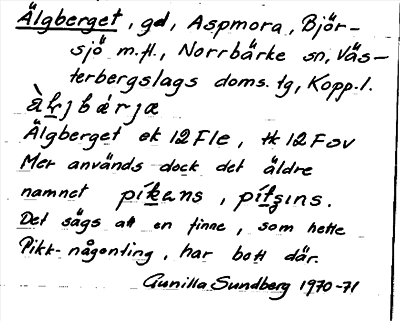 Älgberget, gd, Aspmora, Björ-
sjö m.fl., Norrbärke sn, Väs-
terbergslags doms. tg, Kopp. l.
Älgberget ek 12 F1e, tk 12 F0v
Mer används dock det äldre
namnet píkans, pítzins.
Det sägs att en finne, som hette
Pikk-någonting, har bott där.
Gunilla Sundberg 1970-71